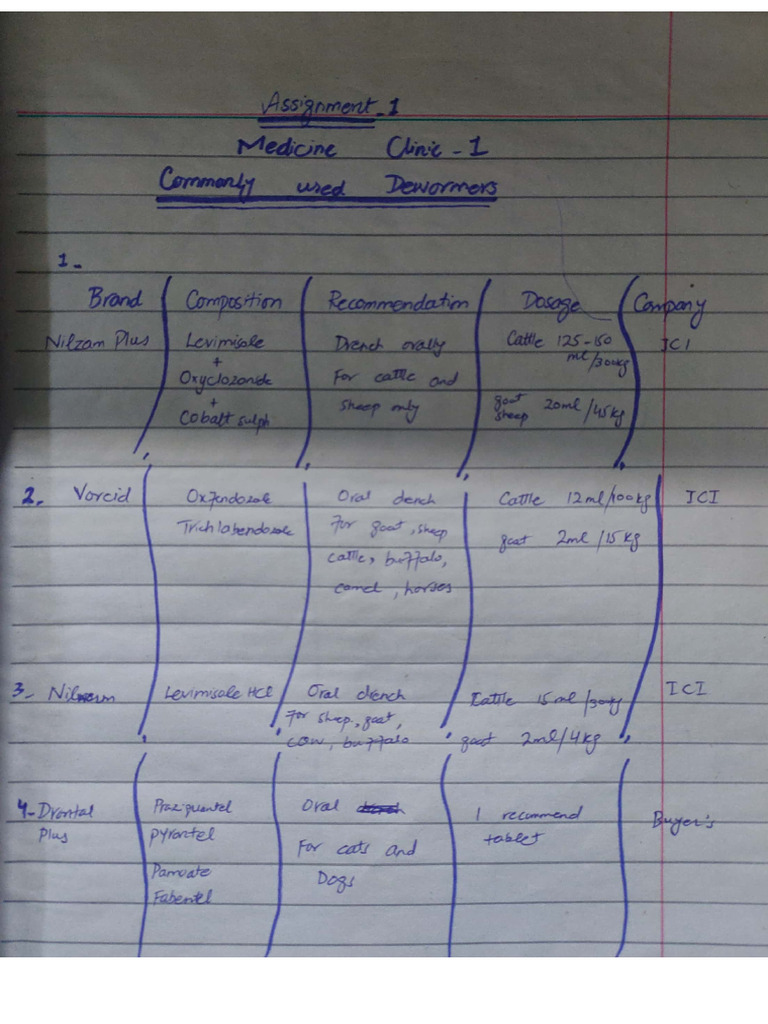 Assignment-1
Medicine Clinic-1
Commonly used Dewormers
1-
Brand Composition Recommendation Dosage Company
Nilzam Plus Levimisole Drench orally Cattle 125-150 ICI
+ ml/300kg
Oxyclozanide For cattle and
+ sheep only goat 20ml/45kg
Cobalt sulph sheep
2. Vorcid Oxfendozole Oral drench Cattle 12ml/100kg ICI
Trichlabendozole For goat, sheep goat 2ml/15kg
cattle, buffalo,
camel, horses
3- Levimisole HCl Oral drench Cattle 15ml/300kg ICI
For sheep, goat,
cow, buffalo goat 2ml/4kg
4- Drontal Praziquentel Oral 1 recommend Buyer's
Plus pyrantel tablet
For cats and
Pamoate Dogs
Fabentel